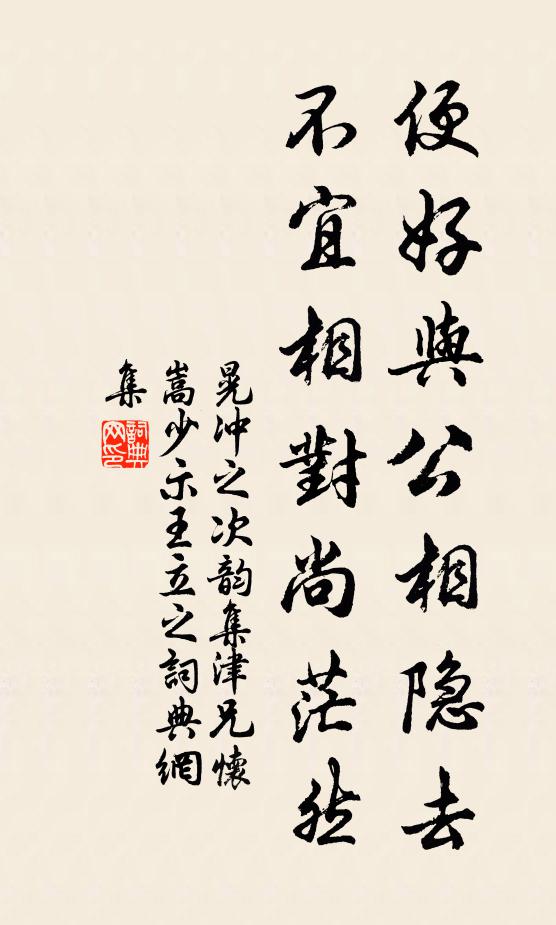 便好與公相隐去
不宜相對尚茫然
晃沖之次韵集津兄懷
嵩少示王立之詞典網
集
詞典
网印